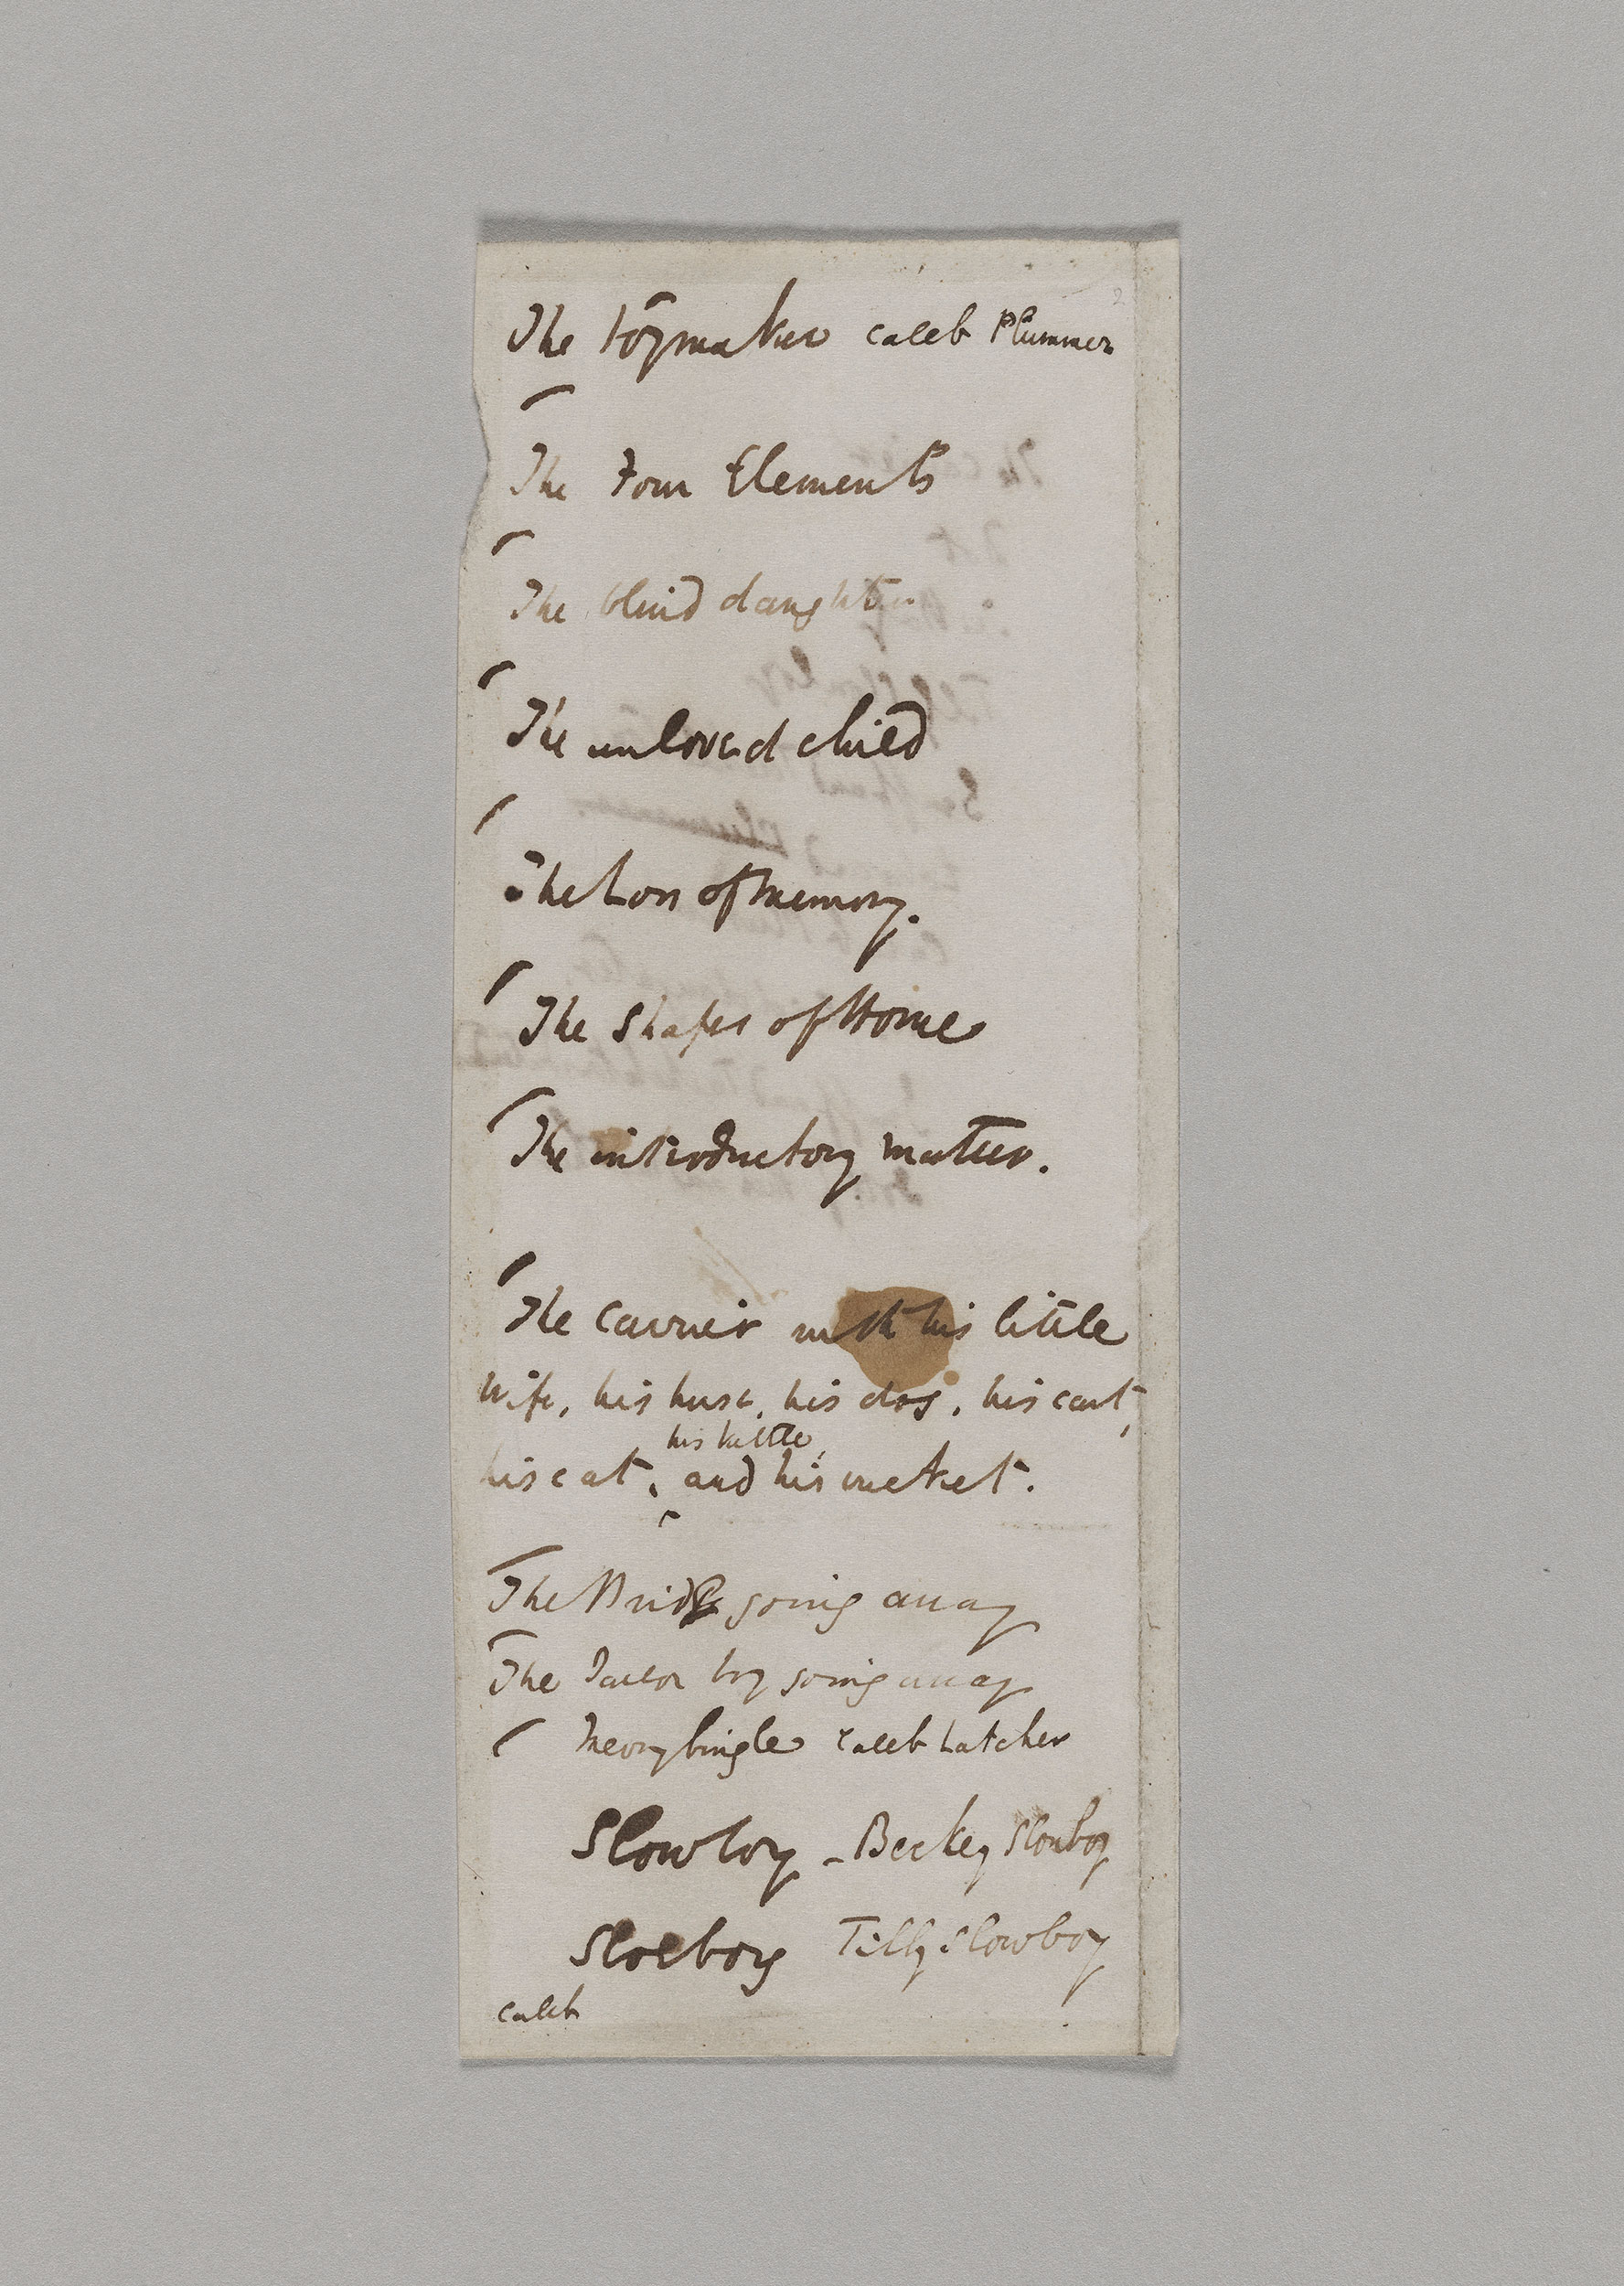 The toymaker Caleb Plummer
The Four Elements
The blind daughter
The unloved child
The Loss of Memory.
The Shapes of Home
The introductory matter.
The Carrier with his little
Wife, his horse, his dog, his cart,
his kettle,
his cat, and his cricket.
The Bride going away
The Sailor boy going away
Merrybingle Caleb Latcher
Slowboy - Beckey Slowboy
Sloeboy Tilly Slowboy
Caleb